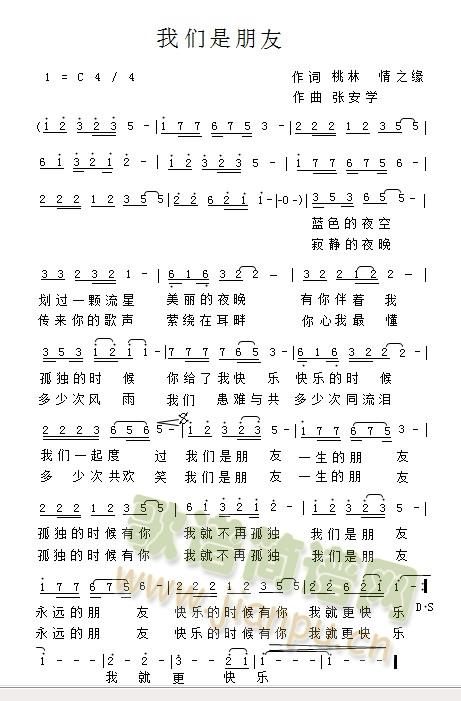 我们是朋友
1 = C 4 / 4
作词 桃林 情之缘
作曲 张安学
(1 2 3 2 3 5 - | 1 7 7 6 7 5 3 - | 2 2 2 1 2 3 5 5 - |
6 1 3 2 1 2 - | 1 2 3 2 3 5 - | 1 7 7 6 7 5 - |
2 2 2 1 2 3 5 5 | 2 2 6 2 1 1 - | -0- ) | 3 5 3 6 5 5 - |
蓝色的夜空
寂静的夜晚
3 3 2 3 2 1 - | 6 1 6 3 2 2 - | 3 2 2 1 2 2 - |
划过一颗流星 美丽的夜晚 有你伴着 我
传来你的歌声 萦绕在耳畔 你心我最 懂
3 5 3 1 2 1 1 - | 7 7 7 7 6 5 3 - | 6 1 6 1 2 3 - |
孤独的时 候 你给了我快 乐 快乐的时候
多少次风 雨 我们 患难与共 多少次同流泪
2 2 2 3 5 6 5 - | 1 2 3 2 3 5 - | 1 7 1 6 7 5 - |
我们一起度 过 我们是朋 友 一生的朋 友
多 少次共欢 笑 我们是朋 友 一生的朋 友
孤独的时候有你 我就不再孤独 我们是朋 友
孤独的时候有你 我就不再孤独 我们是朋 友
1 7 7 6 7 6 - | 2 2 2 1 2 3 5 5 | 2 2 6 2 1 1 - :|
D·S
永远的朋 友 快乐的时候有你 我就更快乐
永远的朋 友 快乐的时候有你 我就更快乐
1 - 1 - | 2 - 2 - | 3 - - 2 1 | 1 - 1 - | 1 - - - |
我 就 更 快 乐
歌谱简谱网
www.jianpu.cn